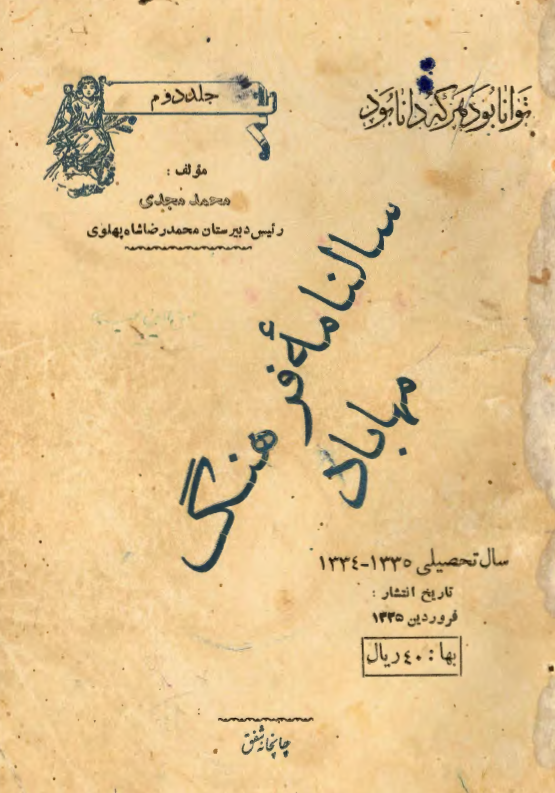 توانا بود هر که دانا بود
جلد دوم
مؤلف :
محمد مجدی
رئیس دبیرستان محمدرضا شاه پهلوی
سالنامهٔ فرهنگ
مهاباد
سال تحصیلی ۱۳۳۵-۱۳۳۴
تاریخ انتشار :
فروردین ۱۳۳۵
بها : ۴۰ ریال
چاپخانه شفق